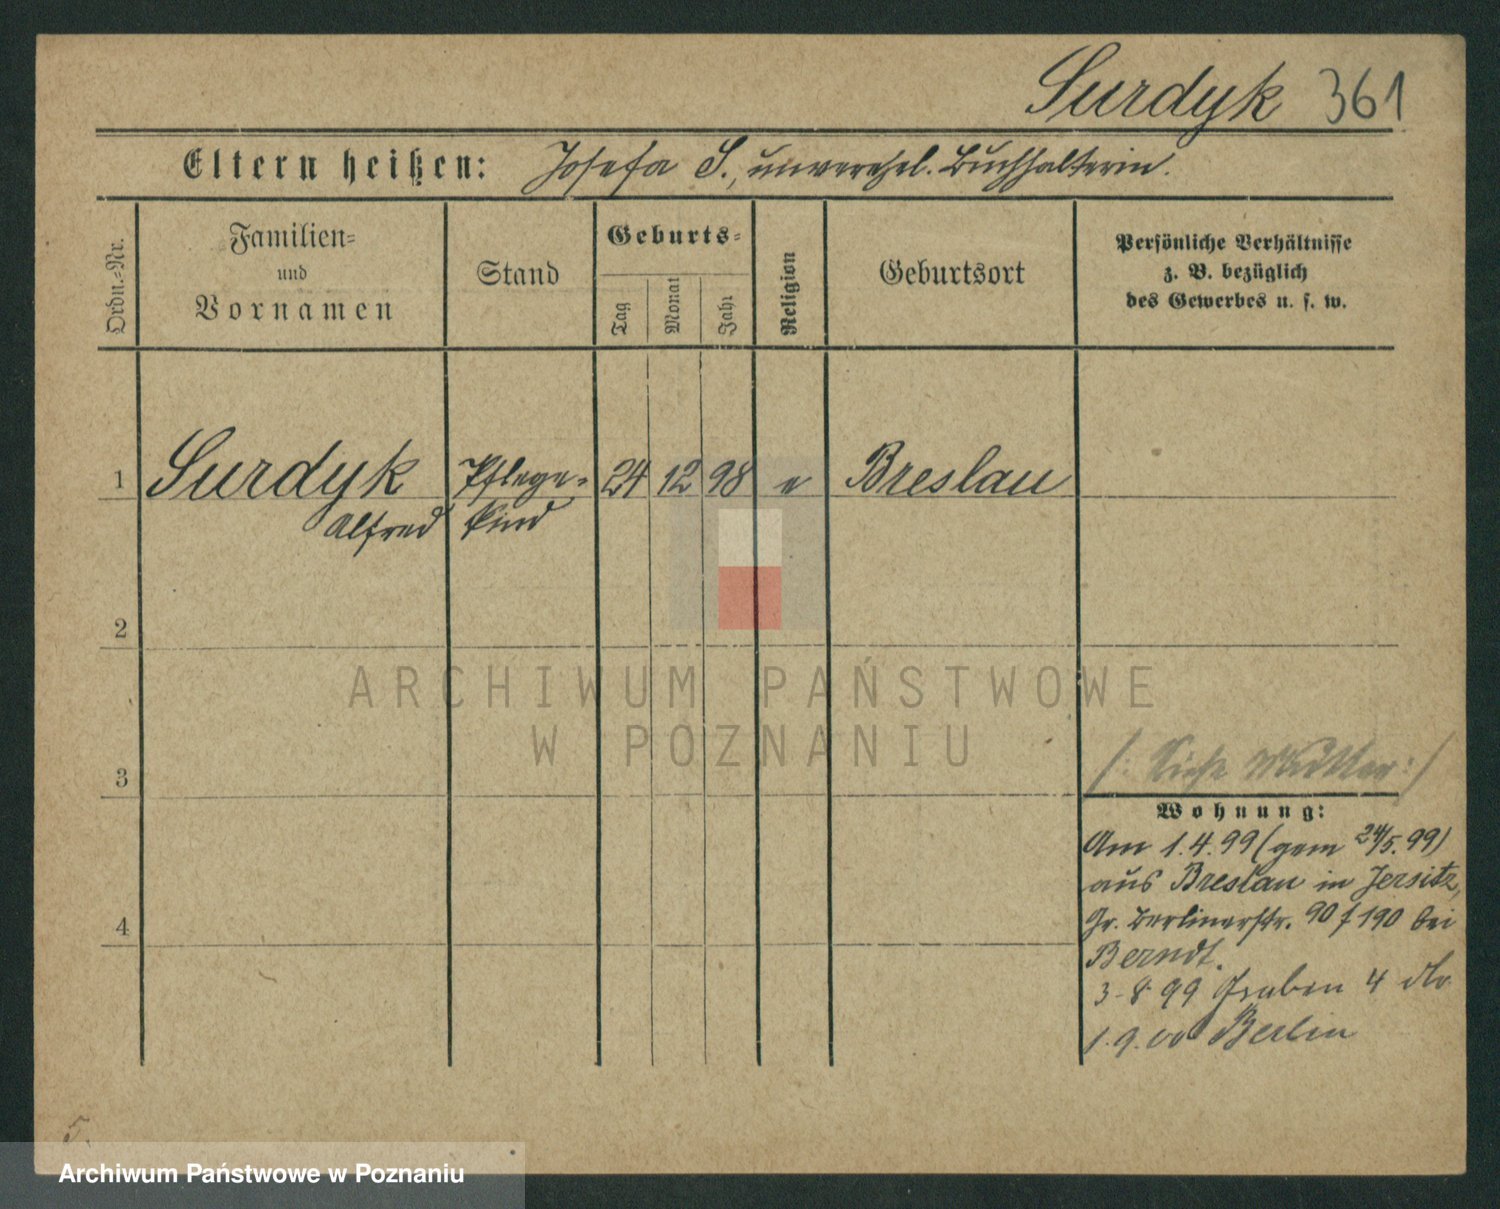 Surdyk 361
Eltern heißen: Josefa S., unverehel. Buchhalterin.
Ordn.=Nr.
Familien=
und
Vornamen
Stand
Geburts=
Tag
Monat
Jahr
Religion
Geburtsort
Persönliche Verhältnisse
z. B. bezüglich
des Gewerbes u. s. w.
1 Surdyk Pflege= 24 12 98 e Breslau
Alfred kind
2
ARCHIWUM PAŃSTWOWE
W POZNANIU
3
/: Siehe Mutter :/
Wohnung:
Am 1.4.99 (gem 24/5.99)
aus Breslau in Jersitz,
Gr. Berlinerstr. 90 f 190 bei
4
Berndt.
3-8 99 Graben 4 dto
1.9.00 Berlin
5.
Archiwum Państwowe w Poznaniu